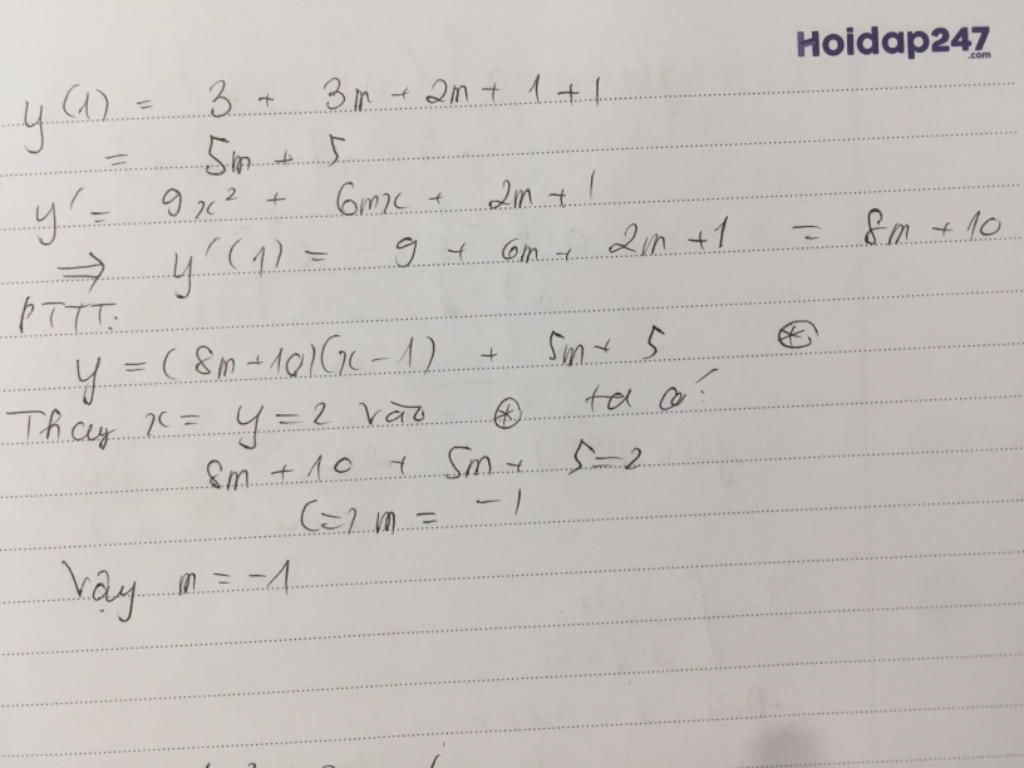 Hoidap247
.com
y(1) = 3 + 3m + 2m + 1 + 1
= 5m + 5
y' = 9x² + 6mx + 2m + 1
⇒ y'(1) = 9 + 6m + 2m + 1 = 8m + 10
PTTT:
y = (8m + 10)(x - 1) + 5m + 5 ⊛
Thay x = y = 2 vào ⊛ ta có:
8m + 10 + 5m + 5 = 2
(=) m = -1
Vậy m = -1